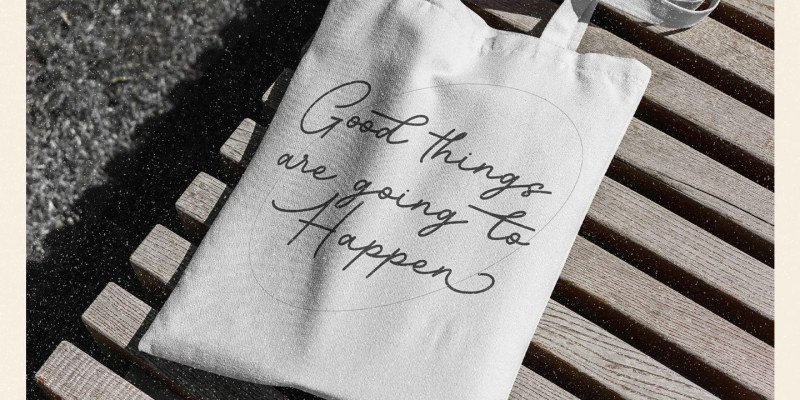 Good things
are going to
Happen